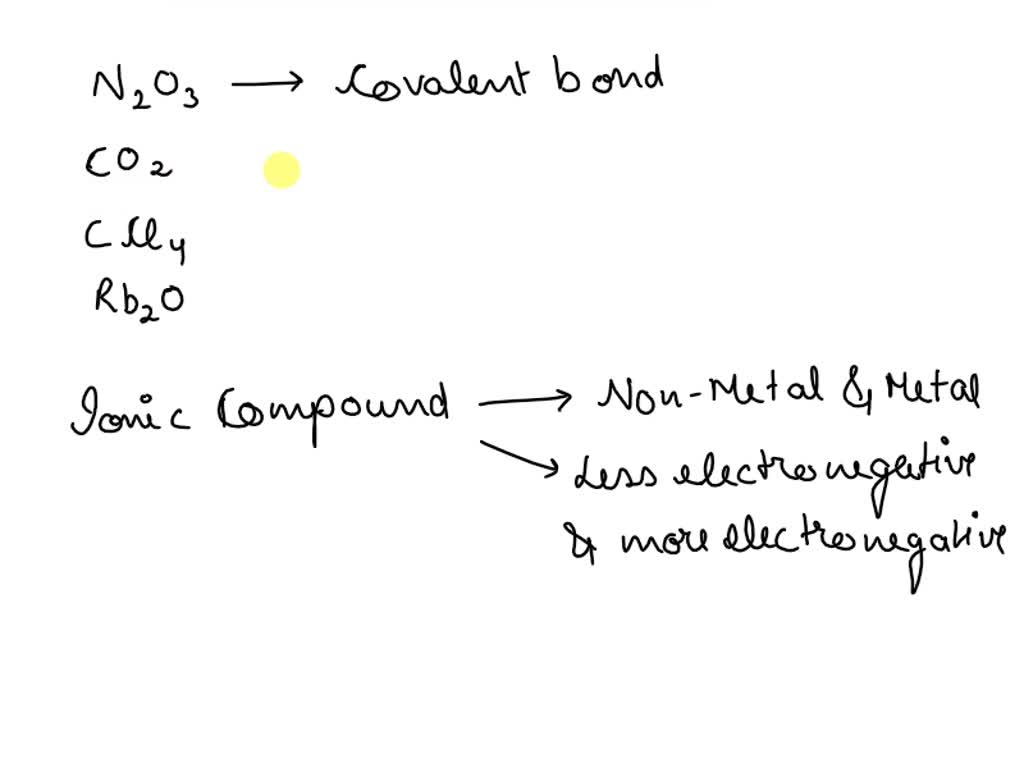 N₂O₃ → Covalent bond
CO₂
CCl₄
Rb₂O
Ionic Compound → Non-Metal & Metal
→ Less electronegative
& more electronegative